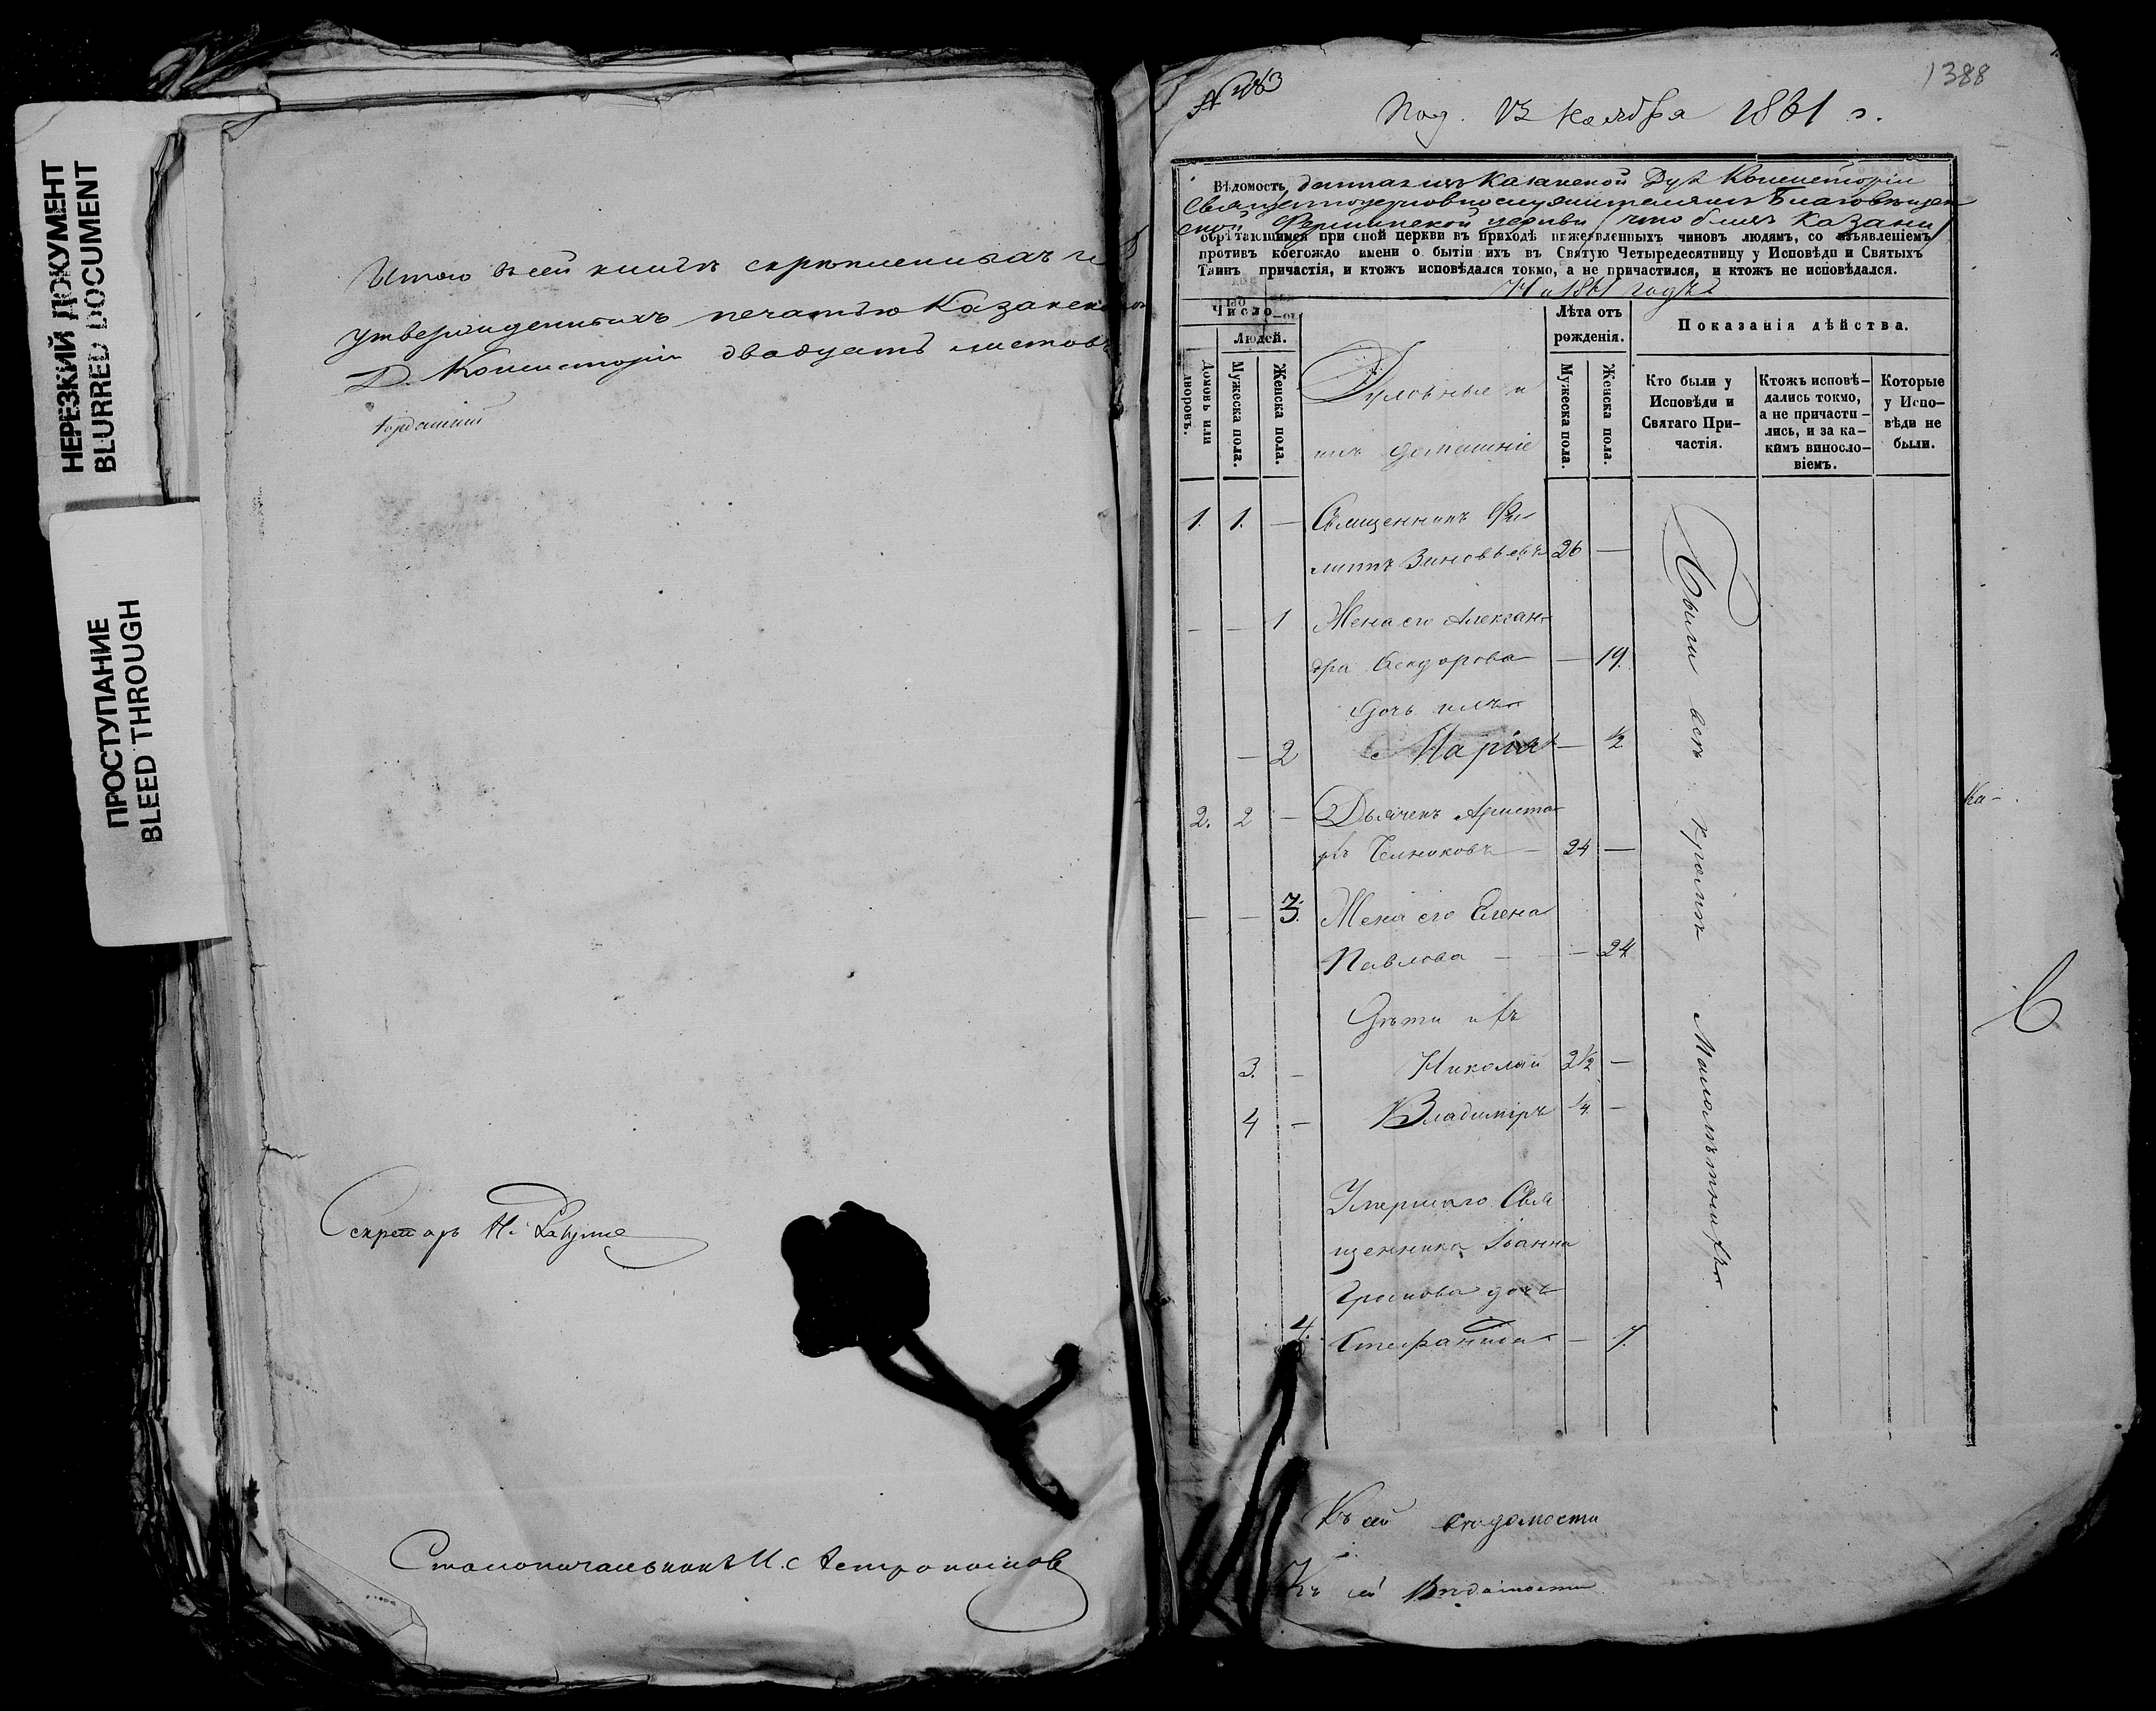 НЕРЕЗКИЙ ДОКУМЕНТ
BLURRED DOCUMENT
ПРОСТУПАНИЕ
BLEED THROUGH
Итого въ сей книгѣ скрѣпленныхъ и
утвержденныхъ печатью Казанской
Д. Консисторіи двадцать листовъ
Секретарь Н.
Столоначальникъ И. Астрономовъ
1388
№
Под. 13 Ноября 1861 г.
Вѣдомость, данная изъ Казанской Дух. Консисторіи
Священноцерковнослужителямъ Благовѣщен
ской церкви (что близъ Казани)
обрѣтающимся при оной церкви въ приходѣ нижеявленныхъ чиновъ людямъ, со изъявленіемъ
противъ коегождо имени о бытіи ихъ въ Святую Четыредесятницу у Исповѣди и Святыхъ
Таинъ причастія, и ктожъ исповѣдался токмо, а не причастился, и ктожъ не исповѣдался.
На 1861 годъ
Число
Людей.
Домовъ или дворовъ.
Мужеска пола.
Женска пола.
Духовные и
ихъ домашніе
Лѣта отъ рожденія.
Мужеска пола.
Женска пола.
Показанія дѣйства.
Кто были у
Исповѣди и
Святаго При-
частія.
Ктожъ исповѣ-
дались токмо,
а не причасти-
лись, и за ка-
кимъ виносло-
віемъ.
Которые
у Испо-
вѣди не
были.
1. 1. — Священникъ Фи-
липпъ Зиновьевъ 26 —
— — 1 Жена его Алексан-
дра Сидорова — 19.
Дочь ихъ
— 2 Марія — ½
2. 2 — Дьячекъ Ариста-
рхъ 24 —
— — 3. Жена его Елена
Павлова — — 24
Дѣти ихъ
3. — Николай 2½ —
4 — Владиміръ ¼ —
Умершаго Свя
щенника Іоанна
Громова дочь
4. Стефанида — 7.
Были всѣ кромѣ Малолѣтнихъ.
Ка-
Къ сей вѣдомости
Къ сей Вѣдомости